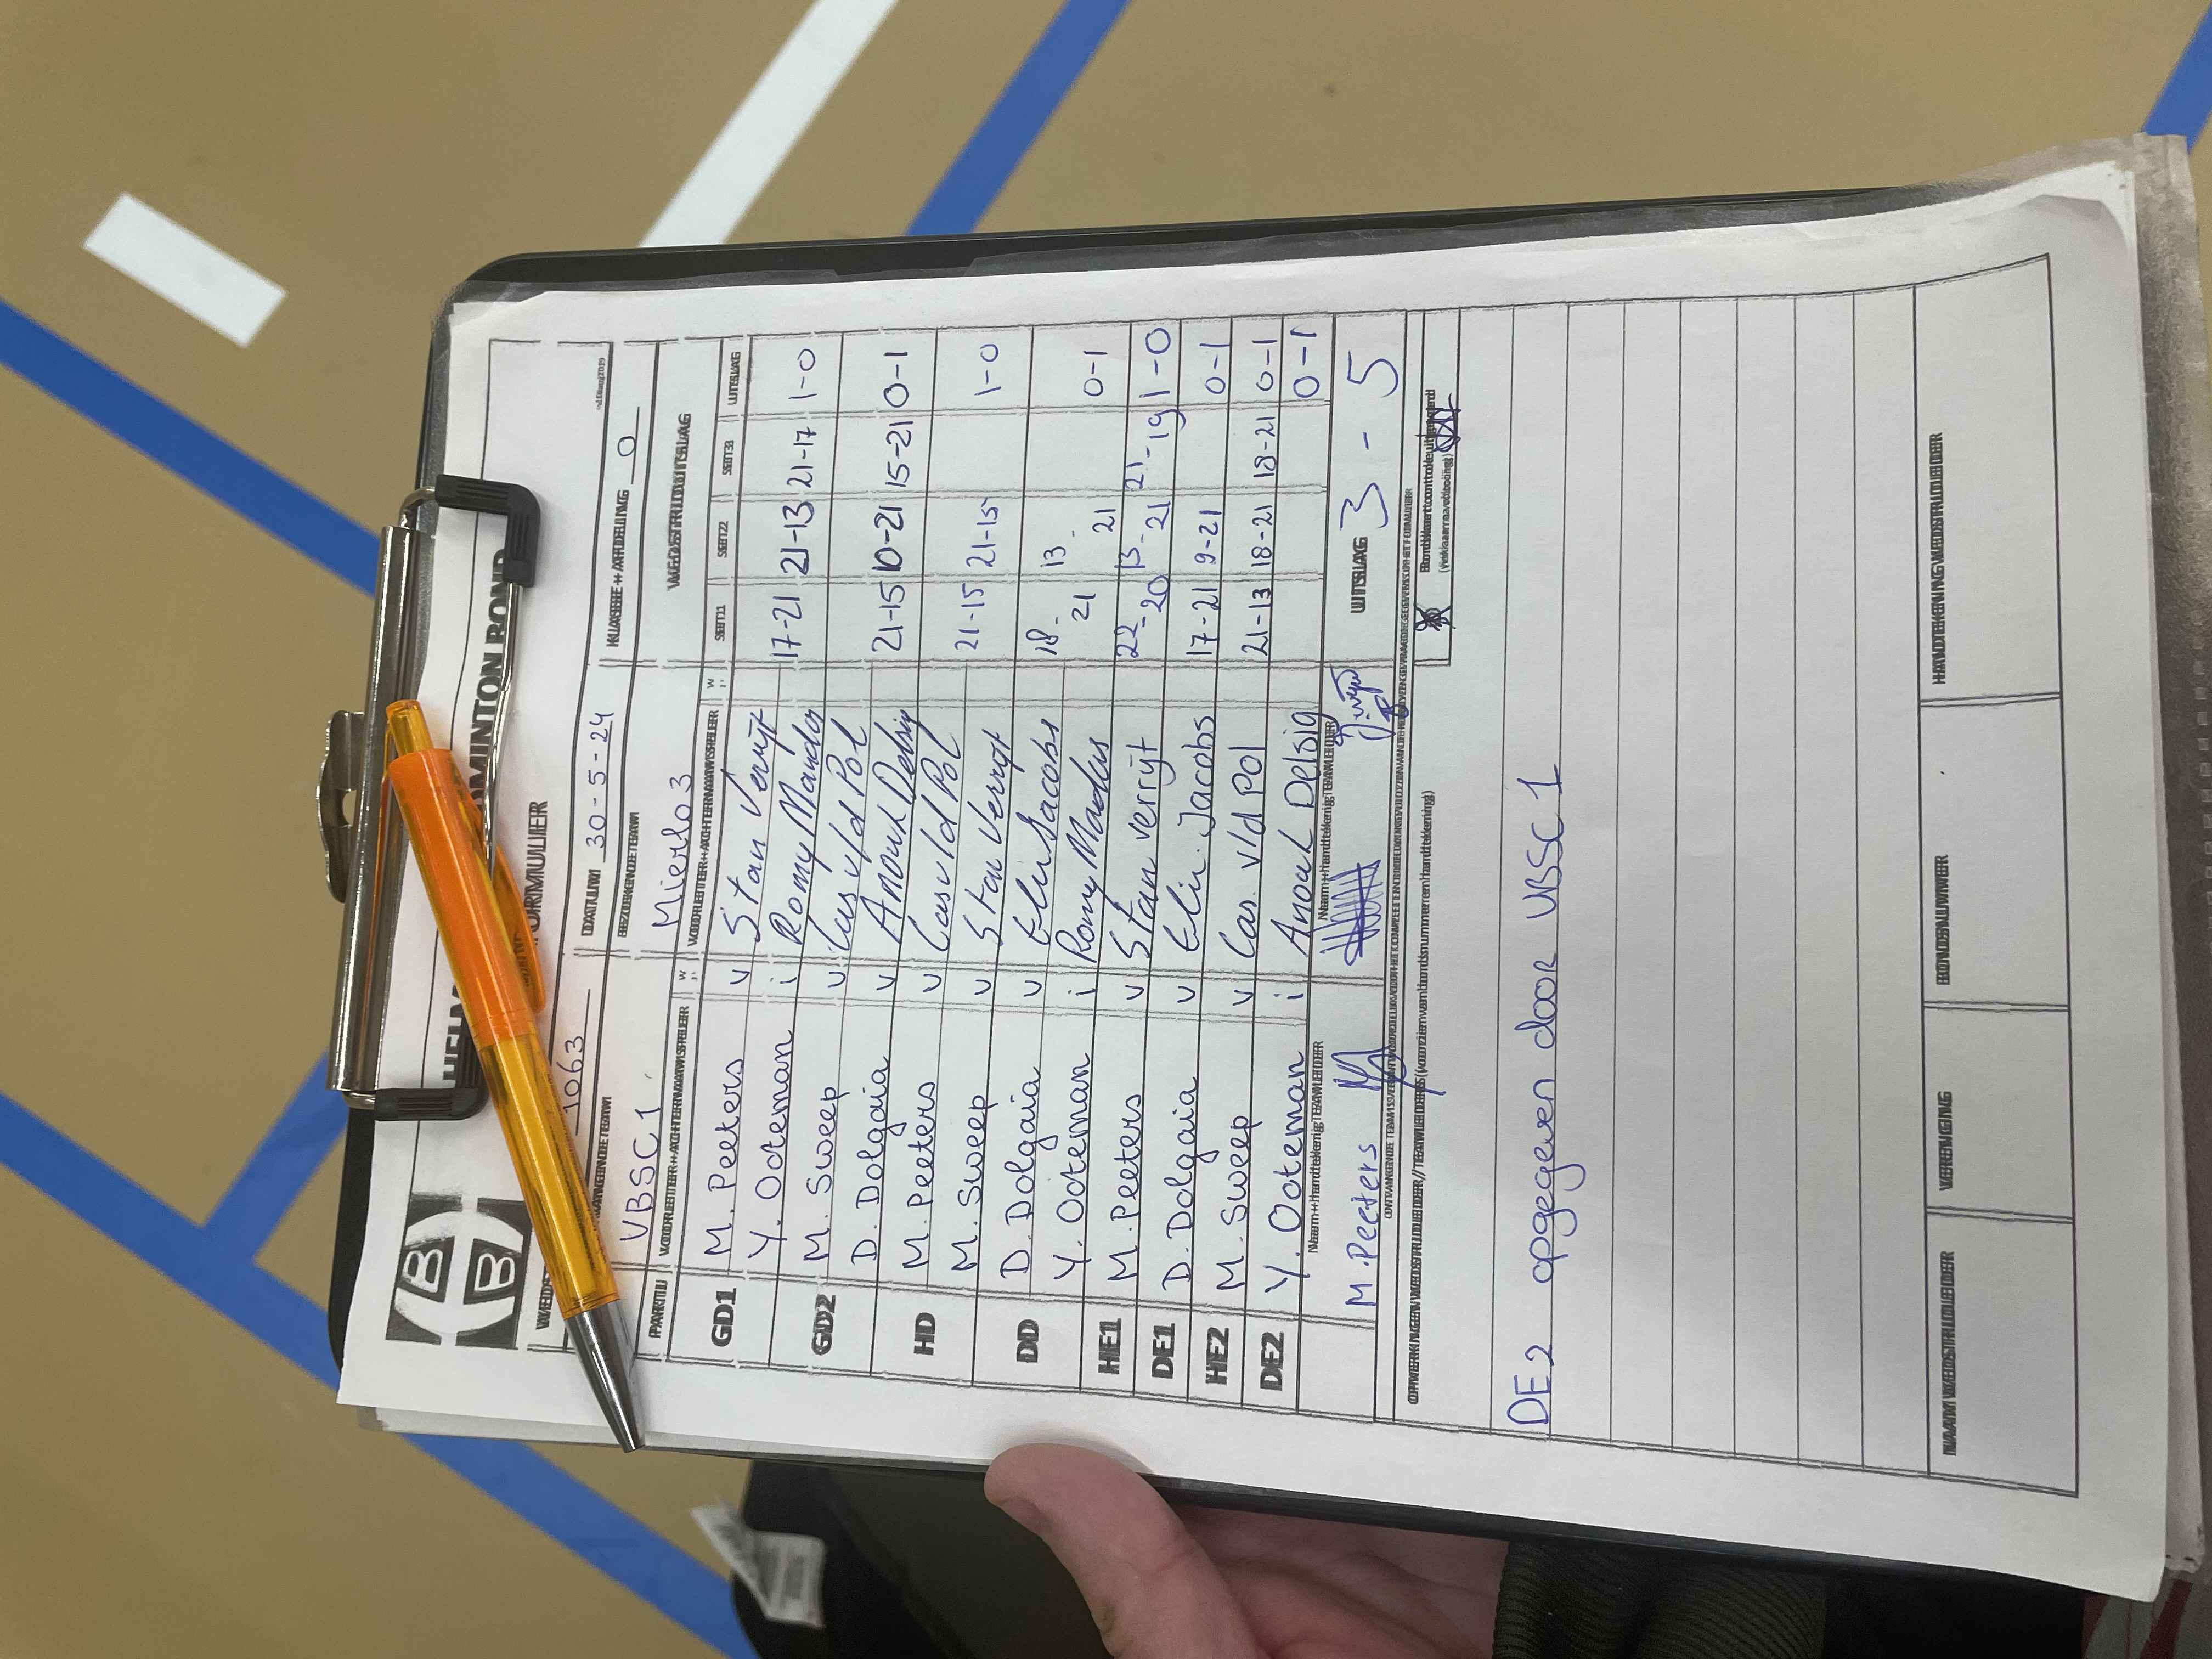 B
B
MINTON BOND
FORMULIER
1063
DATUM 30-5-24
KLASSE + AFDELING 0
BEZOEKENDE TEAM
VBSC 1
Mierlo 3
WEDSTRIJDUITSLAG
PARTIJ
VOORLETTER + ACHTERNAAM SPELER
VOORLETTER + ACHTERNAAM SPELER
SET 1
SET 2
SET 3
UITSLAG
GD1
M. Peeters v Stan Verrijt
Y. Ooteman i Romy Mandos
17-21 21-13 21-17 1-0
GD2
M. Sweep v Cas v/d Pol
D. Dolgaia v Anouk Delsig
21-15 10-21 15-21 0-1
HD
M. Peeters v Cas v/d Pol
M. Sweep v Stan Verrijt
21-15 21-15 1-0
DD
D. Dolgaia v Elin Jacobs
Y. Ooteman i Romy Mados
18-21 13-21 0-1
HE1 M. Peeters v Stan Verrijt 22-20 13-21 21-19 1-0
DE1 D. Dolgaia v Elin. Jacobs 17-21 9-21 0-1
HE2 M. Sweep v Cas. v/d Pol 21-13 18-21 18-21 0-1
DE2 Y. Ooteman i Anouk Delsig 0-1
Naam + handtekening TEAMLEIDER
Naam + handtekening TEAMLEIDER
M. Peeters
UITSLAG 3 - 5
DE2 opgegeven door VBSC 1
NAAM WEDSTRIJDLEIDER
VERENIGING
BONDSNUMMER
HANDTEKENING WEDSTRIJDLEIDER